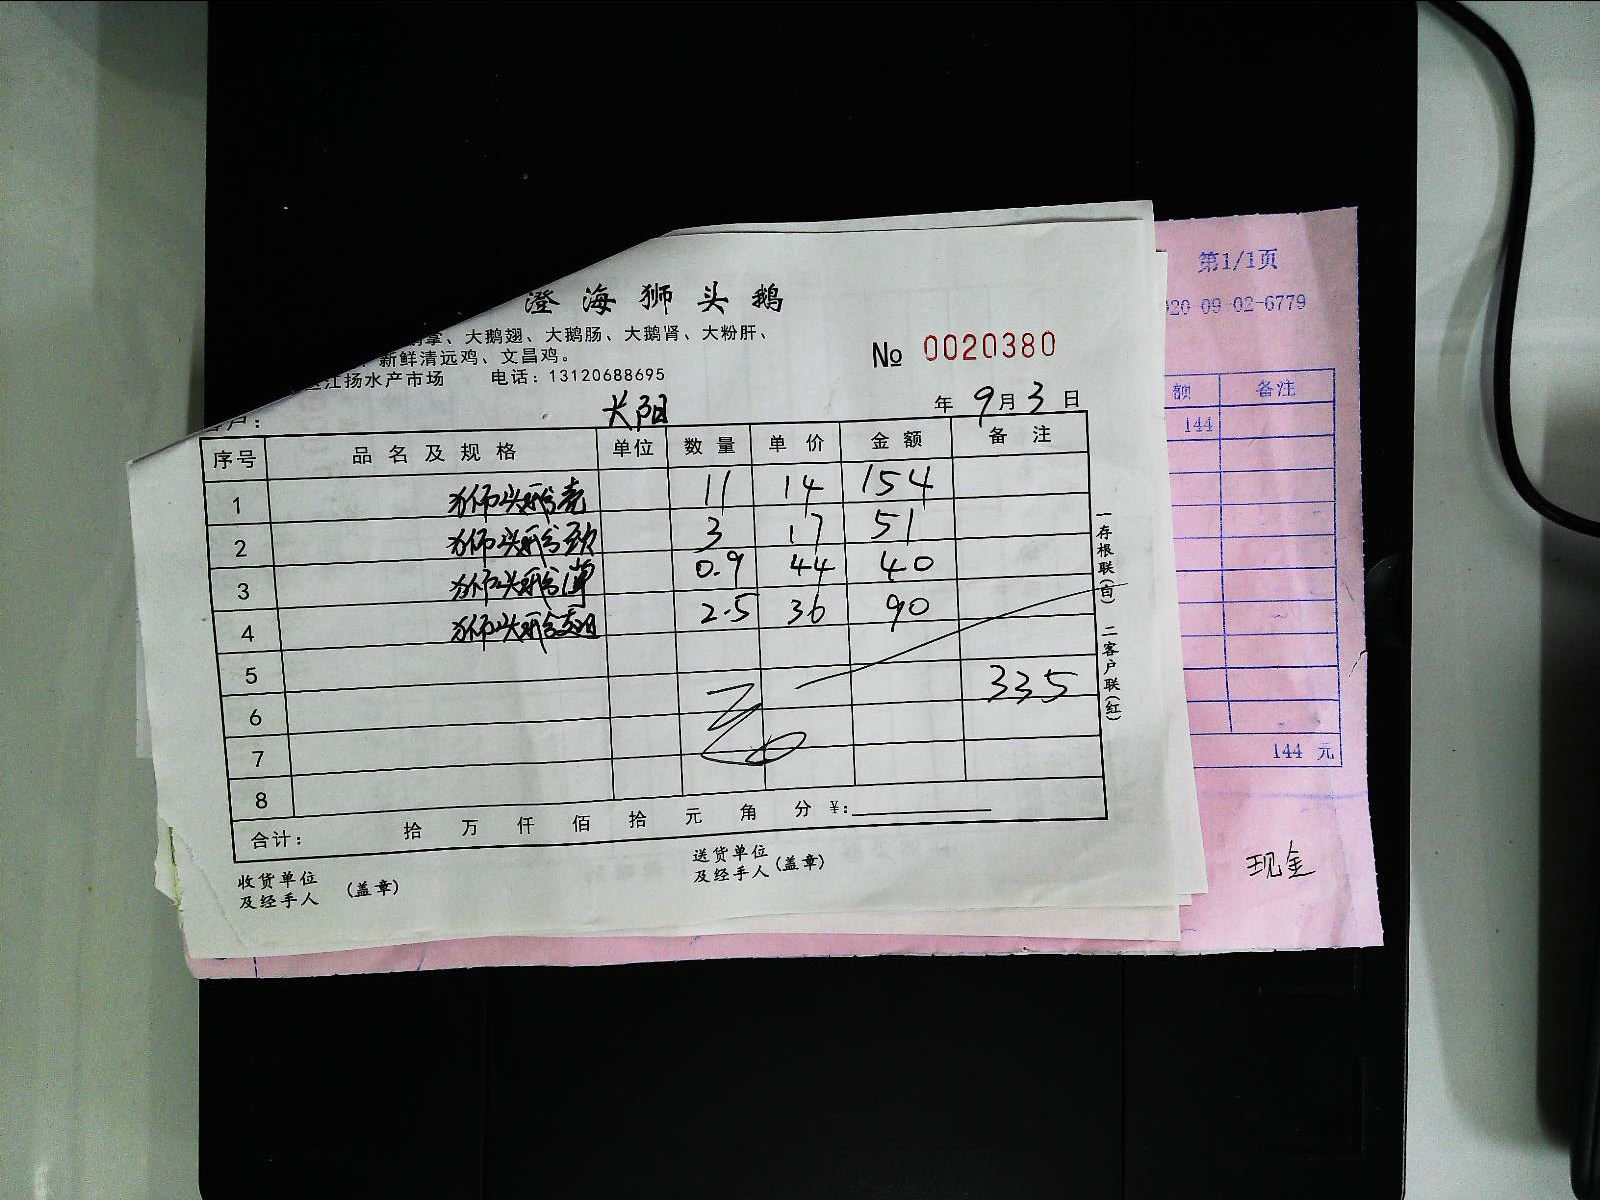 澄海狮头鹅
掌、大鹅翅、大鹅肠、大鹅肾、大粉肝、
新鲜清远鸡、文昌鸡。
江扬水产市场 电话：13120688695
№ 0020380
户： 长阳 年 9月3日
序号 品名及规格 单位 数量 单价 金额 备注
1 狮头鹅壳 11 14 154
2 狮头鹅颈 3 17 51
3 狮头鹅 0.9 44 40
4 狮头鹅翅 2.5 36 90
5
6 335
7
8
合计： 拾 万 仟 佰 拾 元 角 分 ¥：
收货单位
及经手人 （盖章）
送货单位
及经手人（盖章）
一存根联（白） 二客户联（红）
第1/1页
20-09-02-6779
额 备注
144
144 元
现金